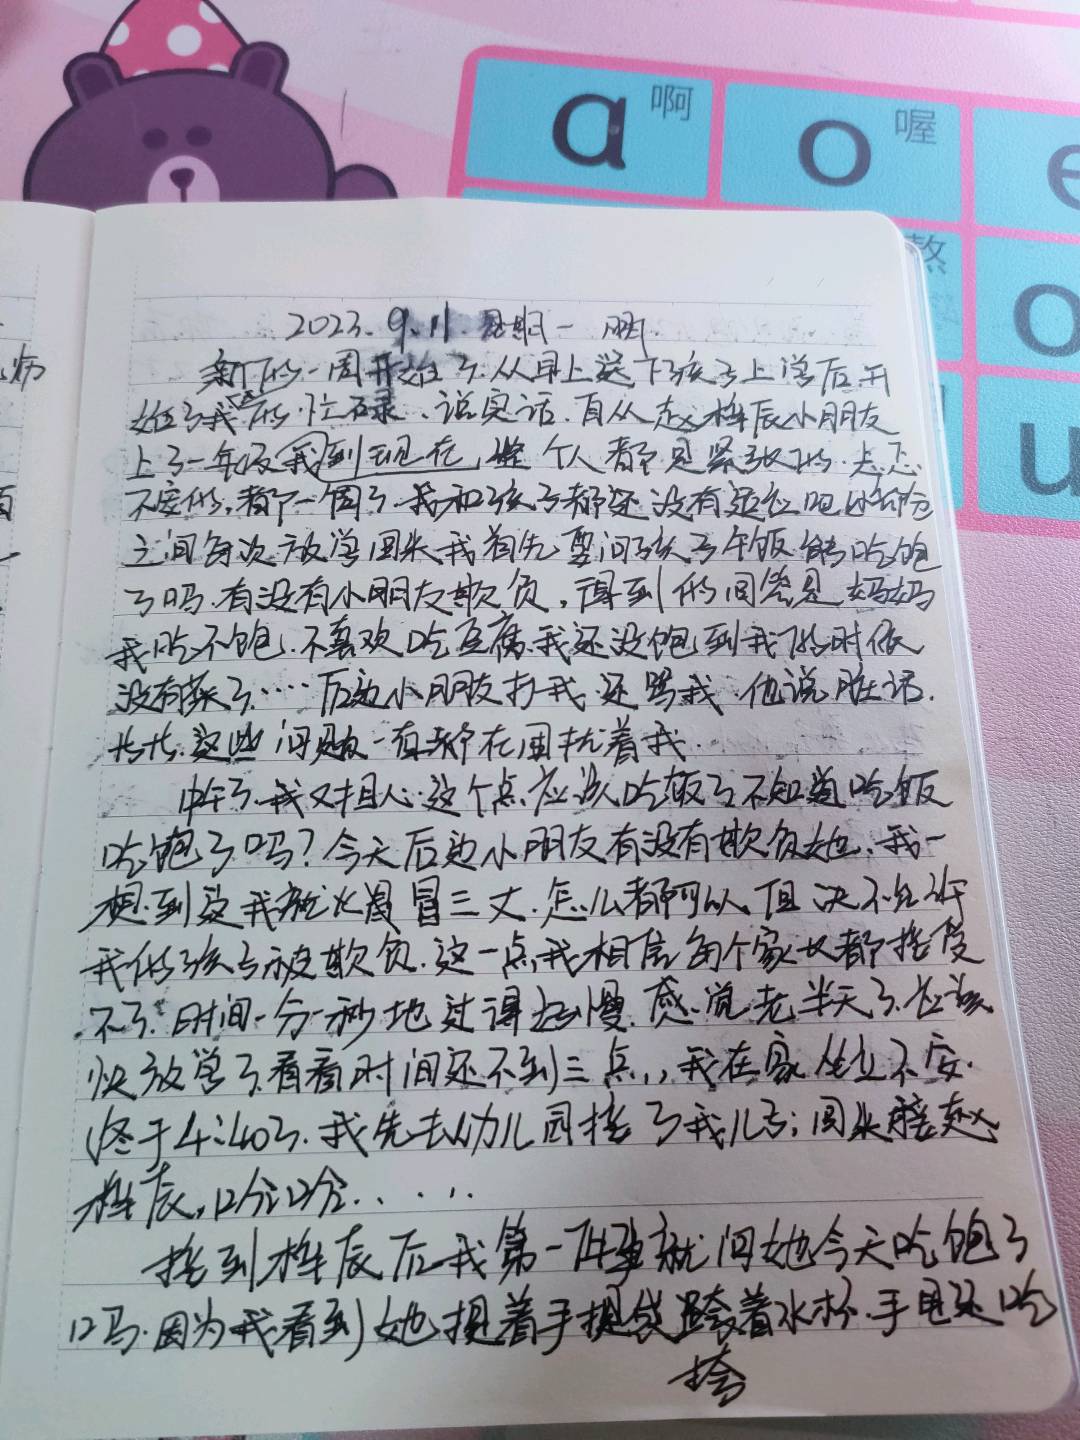 a 啊 o 喔 e
熬
o
u
2023.9.11 星期一 晴
新的一周开始了.从早上送下孩子上学后开
始了我的忙碌.说实话.自从赵梓辰小朋友
上了一年级我到现在,整个人都是紧张的.忐忑
不安的,都一周了.我和孩子都还没有适应吧
之间每次放学回来我首先要问孩子午饭能吃饱
了吗.有没有小朋友欺负,得到的回答是妈妈
我吃不饱.不喜欢吃豆腐.我还没饱到我的时候
没有菜了....后边小朋友打我.还骂我.他说脏话.
等等.这些问题一直都在困扰着我.
中午了.我又担心.这个点应该吃饭了不知道吃饭
吃饱了吗?今天后边小朋友有没有欺负她.我一
想到这我就火冒三丈.怎么都可以.但决不允许
我的孩子被欺负.这一点,我相信每个家长都接受
不了.时间一分一秒地过得好慢.感觉老半天了.应该
快放学了.看看时间还不到三点,,我在家坐立不安.
终于4:40了.我先去幼儿园接了我儿子;回来接赵
梓辰,
接到梓辰后我第一件事就问她今天吃饱了
吗.因为我看到她提着手提袋跨着水杯.手里还吃
挎
病